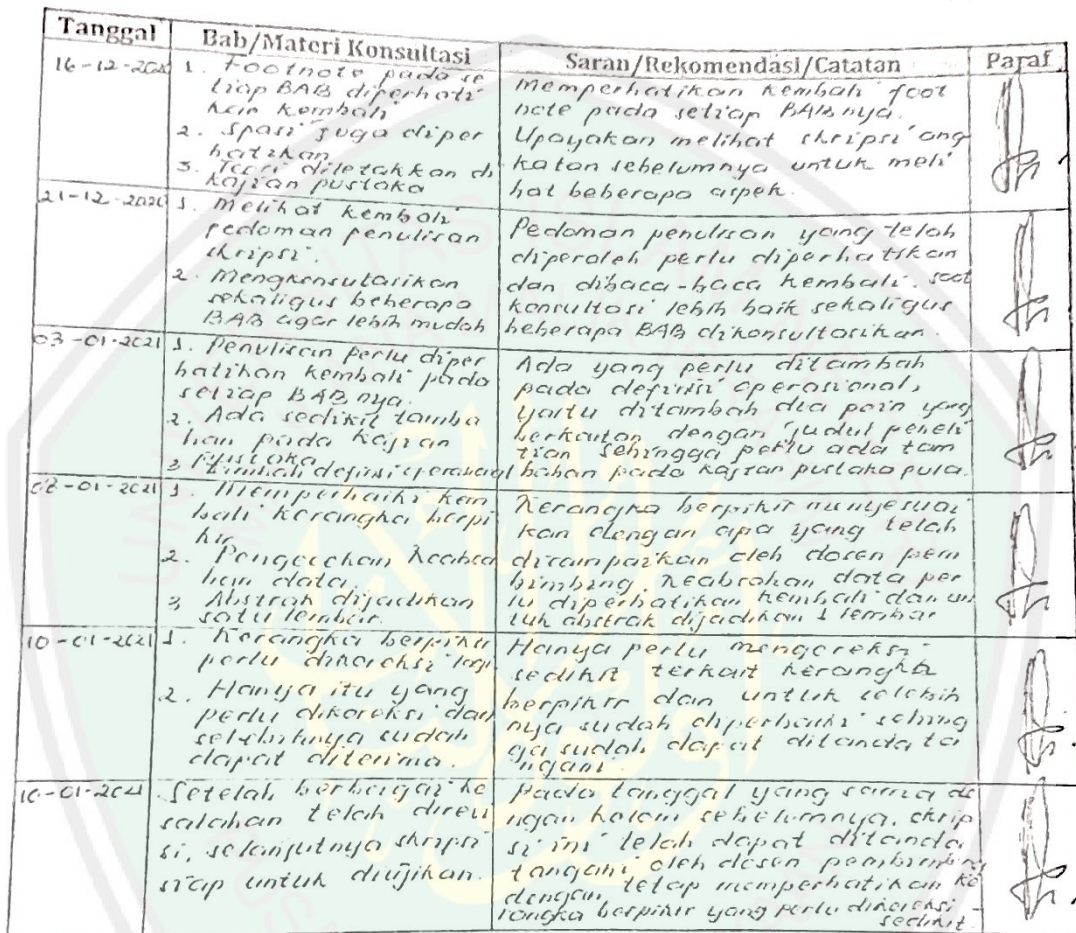 Tanggal Bab/Materi Konsultasi Saran/Rekomendasi/Catatan Paraf
16-12-2020
1. Footnote pada se
tiap BAB diperhati
kan kembali
2. Spasi juga diper
hatikan
3. Teori diletakkan di
kajian pustaka
Memperhatikan kembali foot
note pada setiap BABnya.
Upayakan melihat skripsi ang
katan sebelumnya untuk meli
hat beberapa aspek.
21-12-2020
1. Melihat kembali
pedoman penulisan
skripsi.
2. Mengkonsultasikan
sekaligus beberapa
BAB agar lebih mudah
Pedoman penulisan yang telah
diperoleh perlu diperhatikan
dan dibaca-baca kembali. saat
konsultasi lebih baik sekaligus
beberapa BAB dikonsultasikan.
03-01-2021
1. Penulisan perlu diper
hatikan kembali pada
setiap BAB nya.
2. Ada sedikit tamba
han pada kajian
pustaka
3. Ditambah definisi operasional
Ada yang perlu ditambah
pada definisi operasional,
yaitu ditambah dua poin yang
berkaitan dengan judul peneli
tian sehingga perlu ada tam
bahan pada kajian pustaka pula.
08-01-2021
1. Memperbaiki kem
bali kerangka berpi
kir
2. Pengecekan keabsa
han data.
3. Abstrak dijadikan
satu lembar.
Kerangka berpikir menyesuai
kan dengan apa yang telah
disampaikan oleh dosen pem
bimbing, keabsahan data per
lu diperhatikan kembali dan un
tuk abstrak dijadikan 1 lembar
10-01-2021
1. Kerangka berpikir
perlu dikoreksi lagi
2. Hanya itu yang
perlu dikoreksi dan
selebihnya sudah
dapat diterima.
Hanya perlu mengoreksi
sedikit terkait kerangka
berpikir dan untuk selebih
nya sudah diperbaiki sehing
ga sudah dapat ditanda ta
ngani.
10-01-2021
Setelah berbagai ke
salahan telah direvi
si, selanjutnya skripsi
siap untuk diujikan.
Pada tanggal yang sama de
ngan kolom sebelumnya, skrip
si ini telah dapat ditanda
tangani oleh dosen pembimbing
dengan tetap memperhatikan ke
rangka berpikir yang perlu dikoreksi
sedikit.